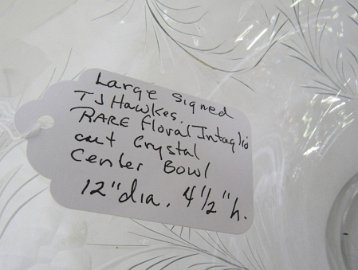 Large Signed
TJ Hawkes.
RARE Floral Intaglio
cut Crystal
Center Bowl
12" dia. 4 1/2" h.